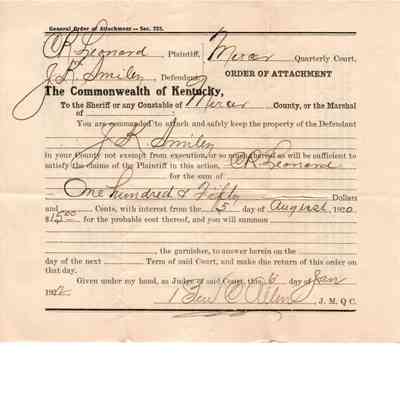 General Order of Attachment — Sec. 221.
C R Leonard, Plaintiff, Mercer Quarterly Court,
vs
J. K. Smiley, Defendant. ORDER OF ATTACHMENT
The Commonwealth of Kentucky,
To the Sheriff or any Constable of Mercer County, or the Marshal
of :
You are commanded to attach and safely keep the property of the Defendant
J K Smiley
in your County not exempt from execution, or so much thereof as will be sufficient to
satisfy the claims of the Plaintiff in this action, C R Leonard
for the sum of
One hundred & Fifty Dollars
and Cents, with interest from the 15 day of August, 1920
$15.00 for the probable cost thereof, and you will summon
the garnishee, to answer herein on the
day of the next Term of said Court, and make due return of this order on
that day.
Given under my hand, as Judge of said Court, this 6 day of Jan
1922
C Allin, J. M. Q. C.